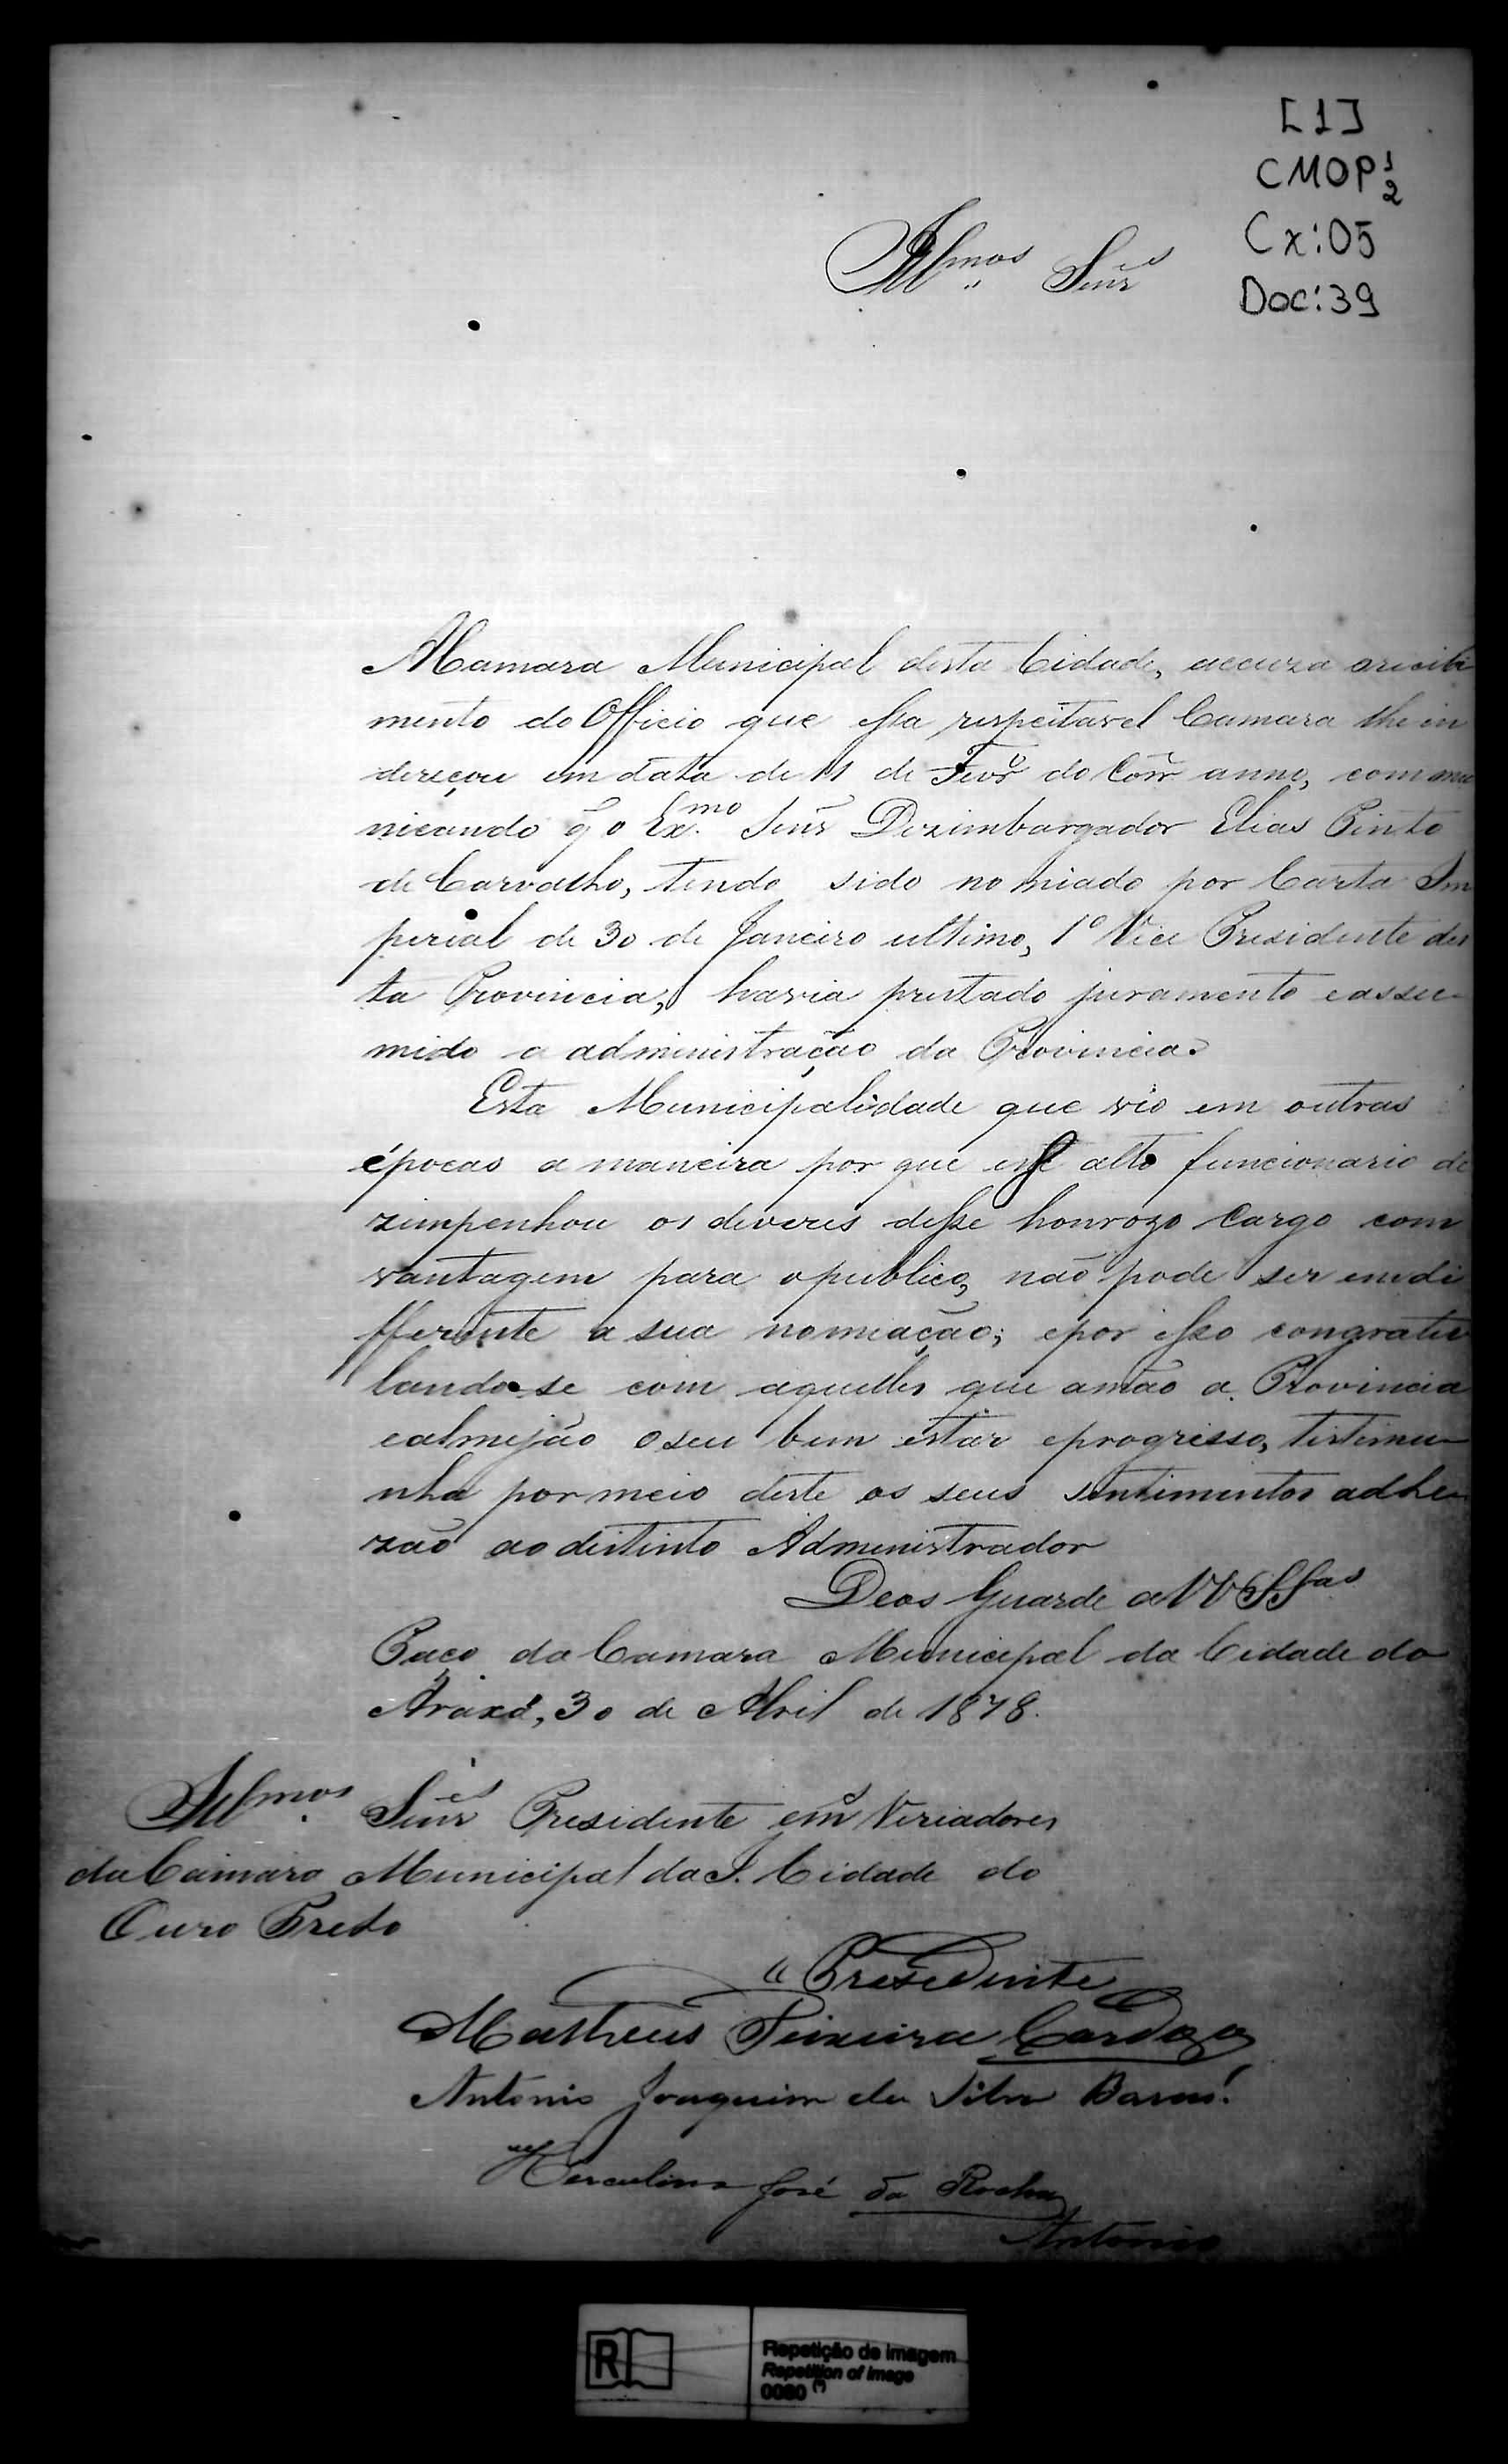 [1]
CMOP 1/2
Cx:05
Doc:39
Illmos Senrẽs
A Camara Municipal desta Cidade, accuza o recibi
mento do Officio que essa respeitavel Camara lhe en
dereçou em data de 11 de Fevrº do Corr anno, commu
nicando q̃ o Exmo Senr Dezimbargador Elias Pinto
de Carvalho, tendo sido nomiado por Carta Im
perial de 30 de Janeiro ultimo, 1º Vice Presidente des
ta Provincia, havia prestado juramento e assu-
mido a administração da Provincia.
Esta Municipalidade que vio em outras
épocas a maneira por que esse alto funcionario de
zimpenhou os deveres desse honrozo Cargo com
vantagem para o publico, não pode ser endi
fferente a sua nomiação; e por isso congratu
lando-se com aquelles que amão a Provincia
e almejão o seu bem estar e progresso, testimu-
nha por meio deste os seus sentimentos adhe
zão ao distinto Administrador
Deos Guarde a VVSSas
Paço da Camara Municipal da Cidade do
Araxá, 30 de Abril de 1878.
Illmos Senrẽs Presidente e Veriadores
da Camara Municipal da I. Cidade do
Ouro Preto
O Presidente
Matheus Teixeira Cardozo
Antonio Joaquim da Silva
Herculino José da Rocha
Antonio
R
Repetição de imagem
Repetition of image
0080 (*)